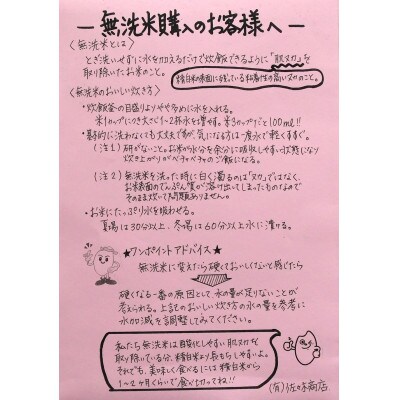 －無洗米購入のお客様へ－
〈無洗米とは〉
とぎ洗いせずに水を加えるだけで炊飯できるように「肌ヌカ」を
取り除いたお米のこと。
精白米の表面に残っている粘着性の高いヌカのこと。
〈無洗米のおいしい炊き方〉
・炊飯釜の目盛りよりやや多めに水を入れる。
米1カップにつき大さじ1〜2杯水を増やす。米3カップだと100ml!!
・基本的に洗わなくても大丈夫ですが、気になる方は一度水で軽くすすぐ。
(注1)研がないこと。お米が水分を余分に吸収しやすい状態になり
炊き上がりがベチャベチャのご飯になる。
(注2)無洗米を洗った時に白く濁るのは「ヌカ」ではなく、
お米表面のでんぷん質が溶け出てしまったものなので
そのまま炊いて問題ありません。
・お米にたっぷり水を吸わせる。
夏場は30分以上、冬場は60分以上水に漬ける。
★ワンポイントアドバイス★
無洗米に変えたら硬くておいしくないと感じたら
硬くなる一番の原因として水の量が足りないことが
考えられる。上記のおいしい炊き方の水の量を参考に
水加減を調整してみてください。
私たち無洗米は酸化しやすい肌ヌカを
取り除いている分、精白米より長もちしやすいよ。
それでも、美味しく食べるには精白米から
1〜2ヶ月くらいで食べ切ってね!!
(有)佐々木商店